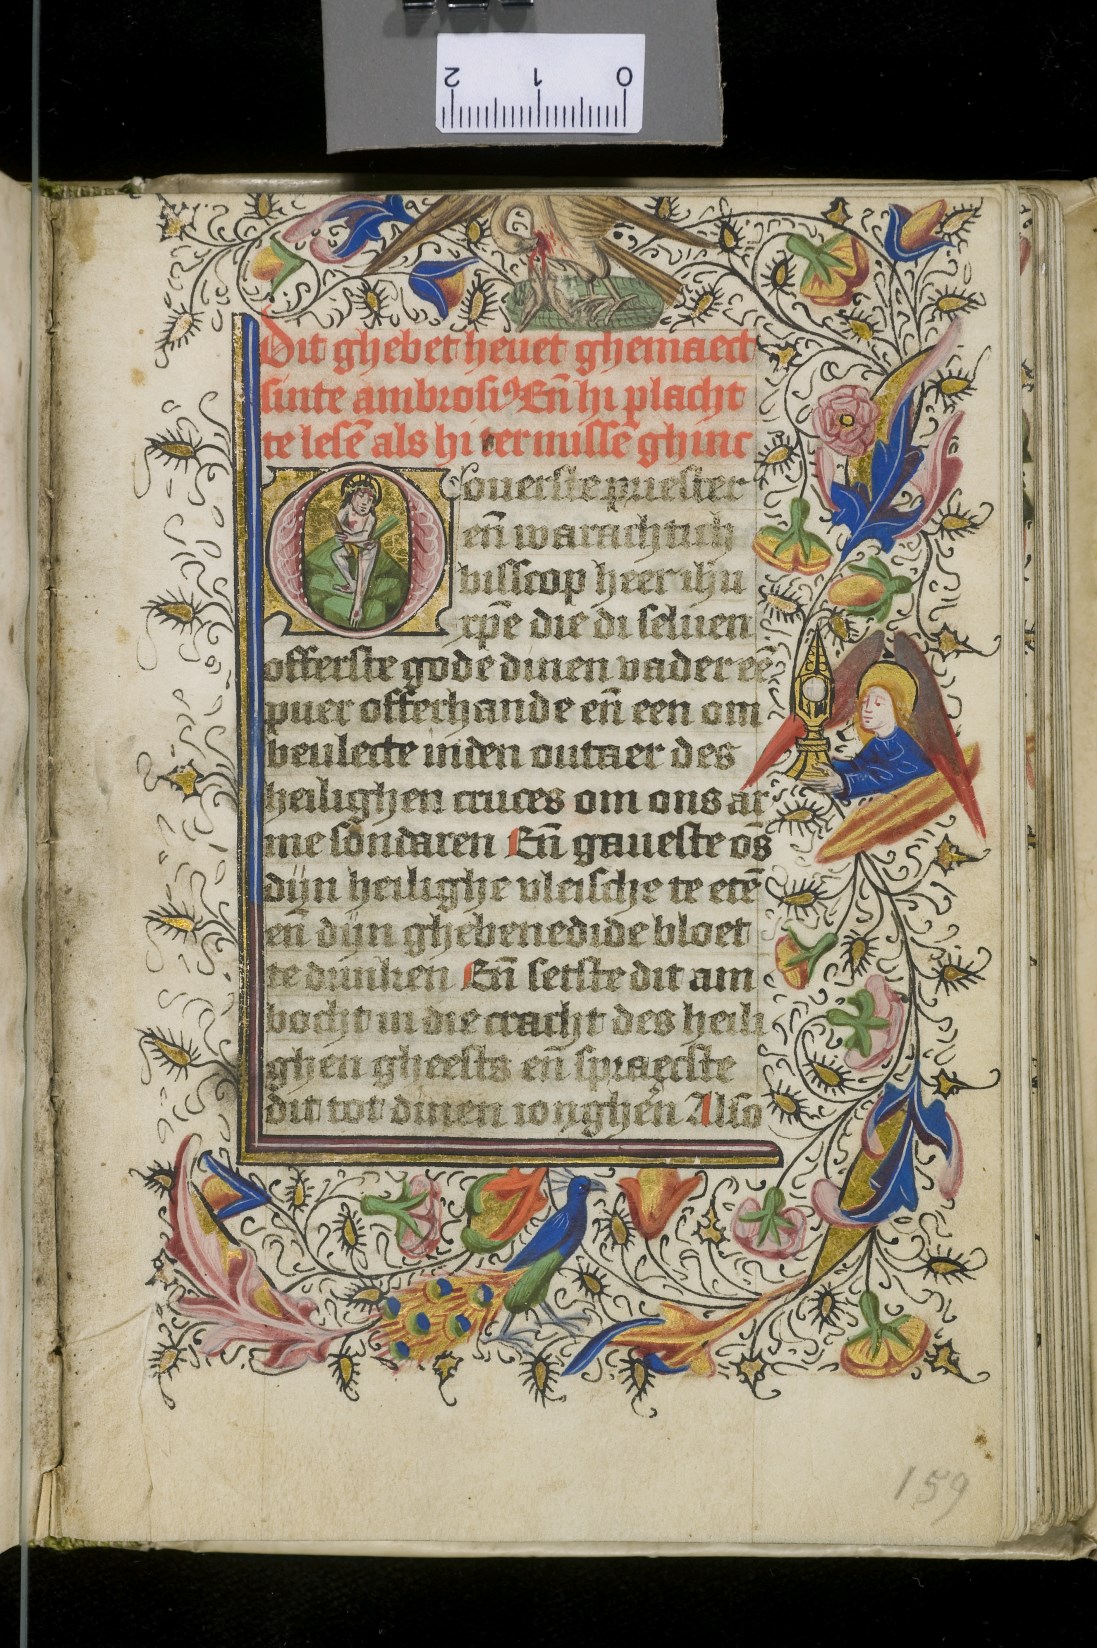 2 1 0
Dit ghebet heuet ghemaect
sinte ambrosiꝰ Eñ hi placht
te lesē als hi ter missē ghinc
O ouerste priester
eñ warachtich
bisscop heer ihu
xp̄e die di seluen
offerste gode dinen vader eē
puer offerhande eñ een om
beulecte inden outaer des
heilighen cruces om ons ar
me sondaren Eñ gaueste ōs
dijn heilighe vleische te etē
eñ dijn ghebenedide bloet
te drinken Eñ setste dit am
bocht in die cracht des heili
ghen gheests eñ spraecste
dit tot dinen ionghe'n Also
159